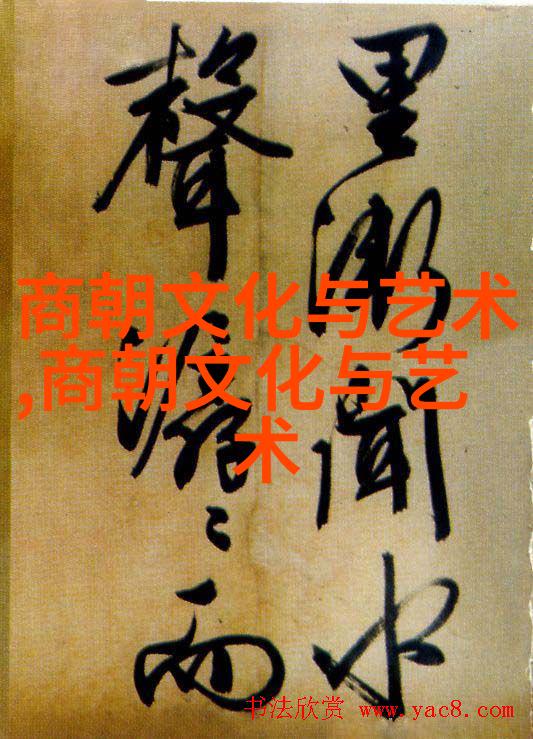 里漸聞水
聲潺〻而
商朝文化与艺术
,商朝文化与艺
术
书法欣赏 www.yac8.com